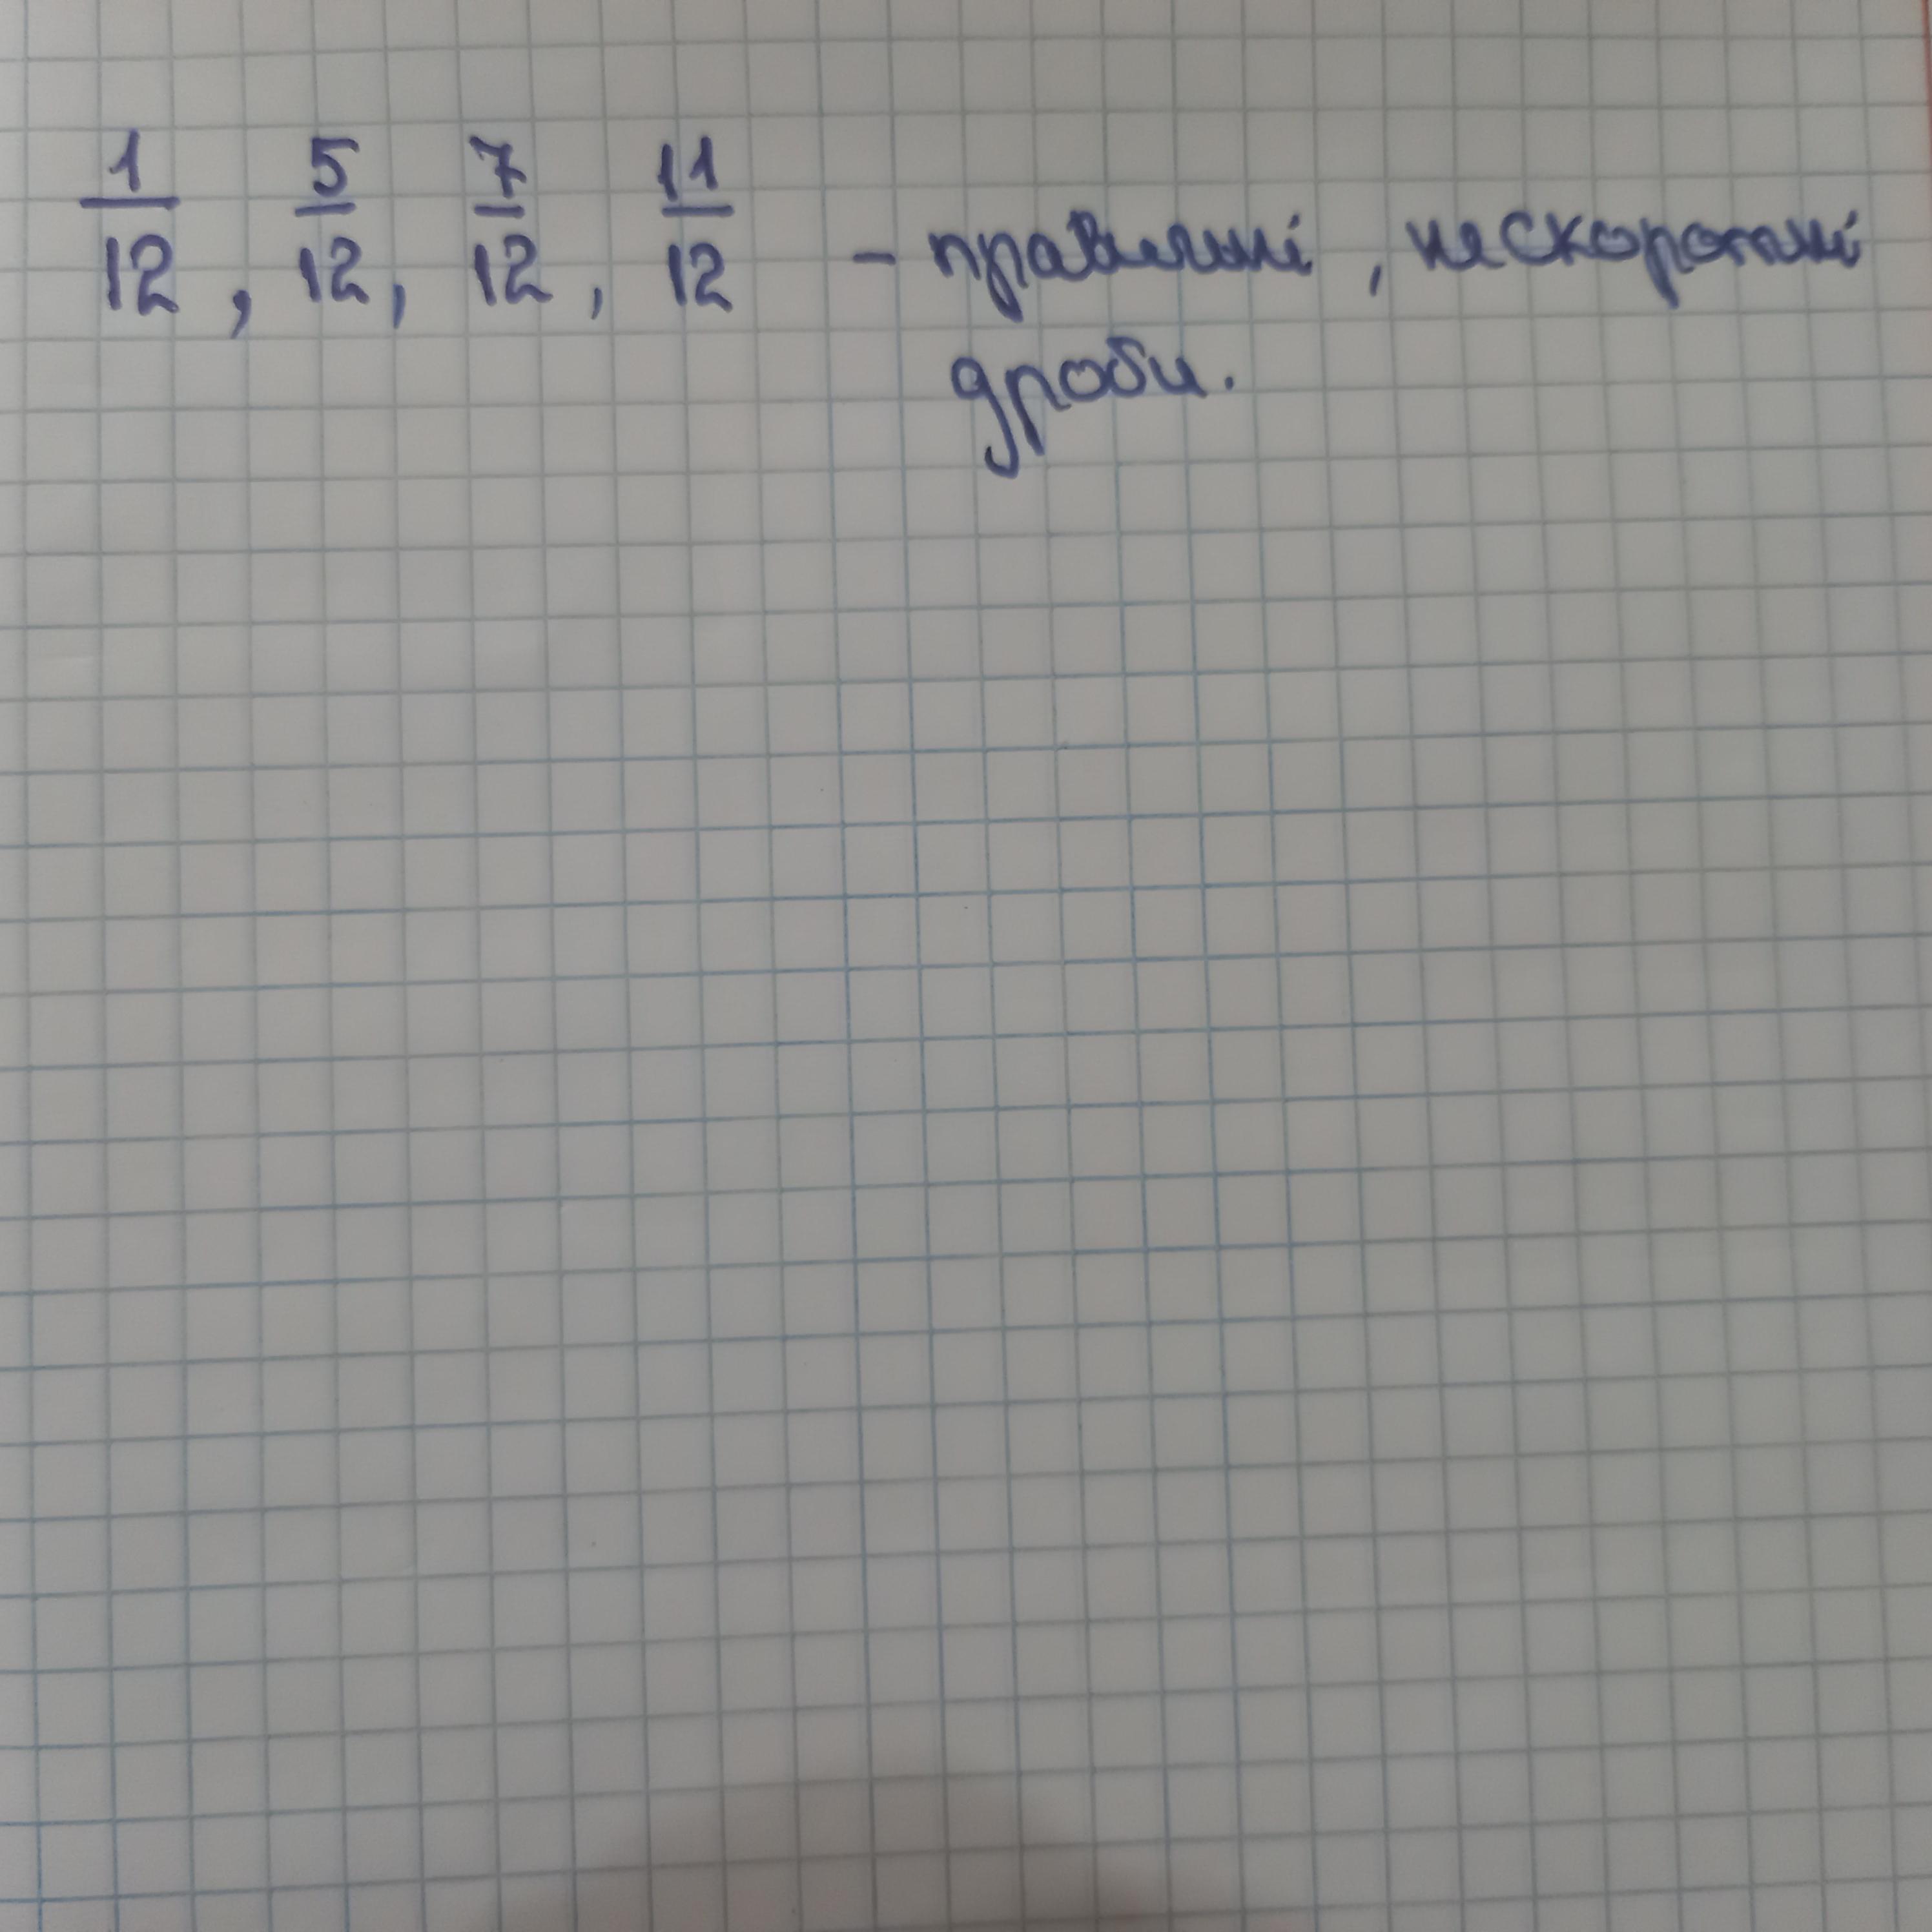 1/12, 5/12, 7/12, 11/12 - правильні, нескоротні
дроби.